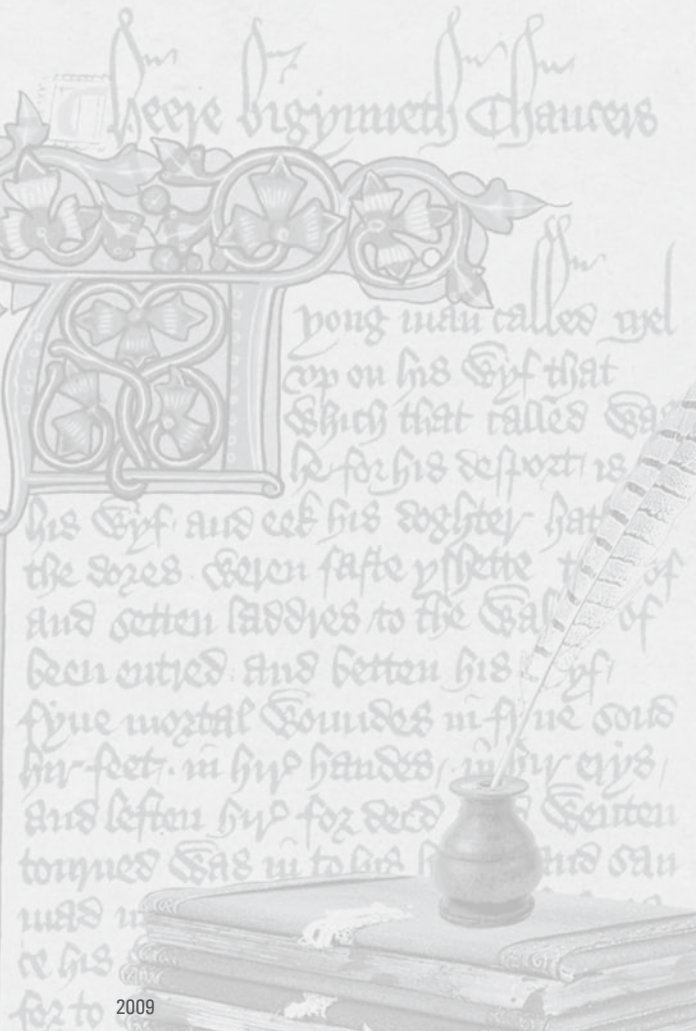 Heere bigynneth Chaucers
yong man called Mel
up on his Wyf that
Which that called Wa
he for his desport is
his Wyf and eek his doghter hat
the dores Weren faste yshette t of
and setten laddres to the Wal of
been entred and betten his yf
fyue mortal Woundes in fyue sond
hir feet in hir handes in hir erys
and leften hir for deed Wenten
tourned Was in to his h and sau
mad m
ce his
for to
2009